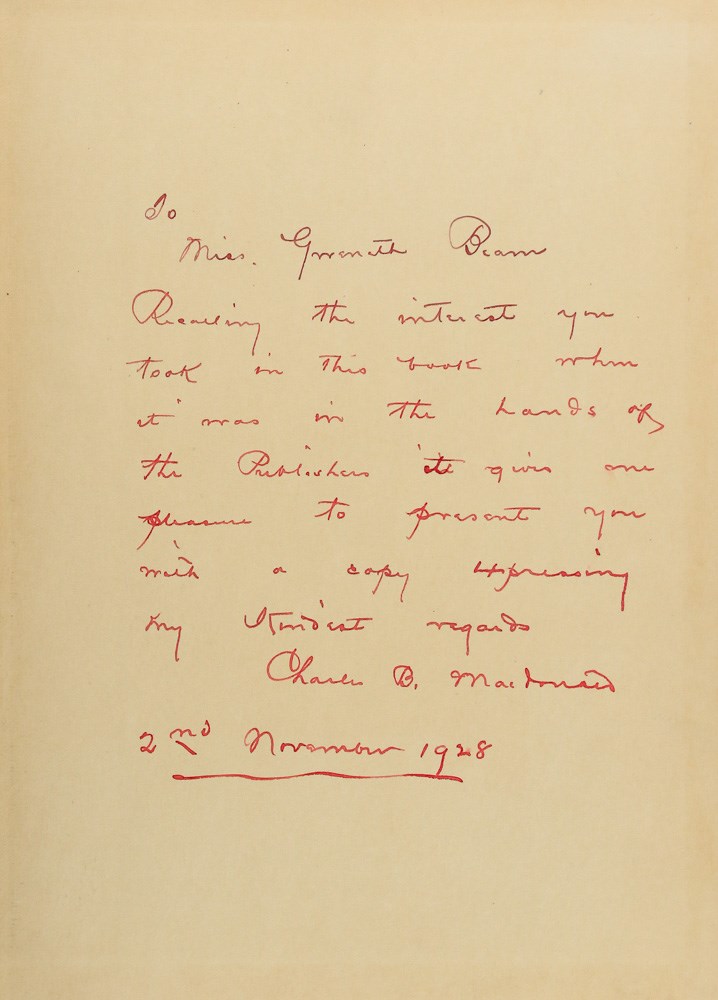 To
Miss. Gweneth Beam
Recalling the interest you
took in this book when
it was in the hands of
the Publishers it gives me
pleasure to present you
with a copy expressing
my Kindest regards
Charles B. Macdonald
2nd November 1928